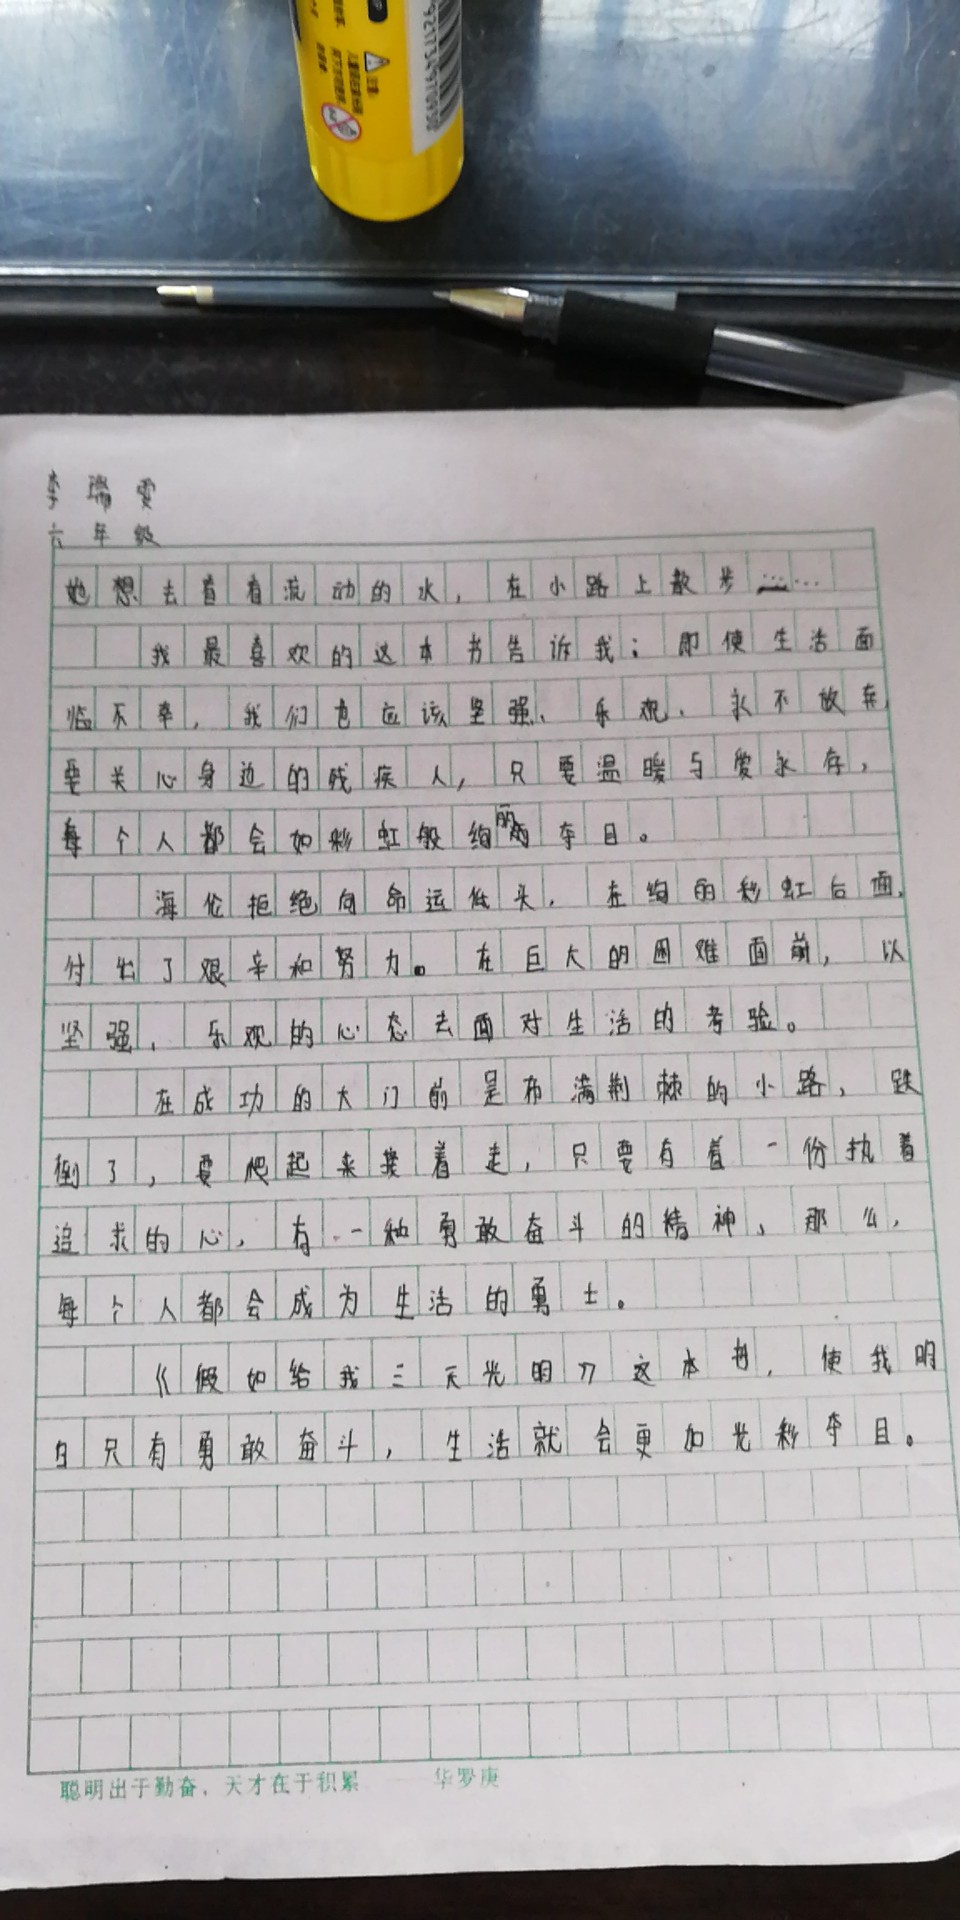 6921734970930
注意:
李瑞雯
六年级
她想去看看流动的水，在小路上散步……
我最喜欢的这本书告诉我：即使生活面
临不幸，我们也应该坚强、乐观、永不放弃，
要关心身边的残疾人，只要温暖与爱永存，
每个人都会如彩虹般绚丽夺目。
海伦拒绝向命运低头，在绚丽彩虹后面，
付出了艰辛和努力。在巨大的困难面前，以
坚强、乐观的心态去面对生活的考验。
在成功的大门前是布满荆棘的小路，跌
倒了，要爬起来接着走，只要有着一份执着
追求的心，有一种勇敢奋斗的精神，那么，
每个人都会成为生活的勇士。
《假如给我三天光明》这本书，使我明
白只有勇敢奋斗，生活就会更加光彩夺目。
聪明出于勤奋，天才在于积累 华罗庚